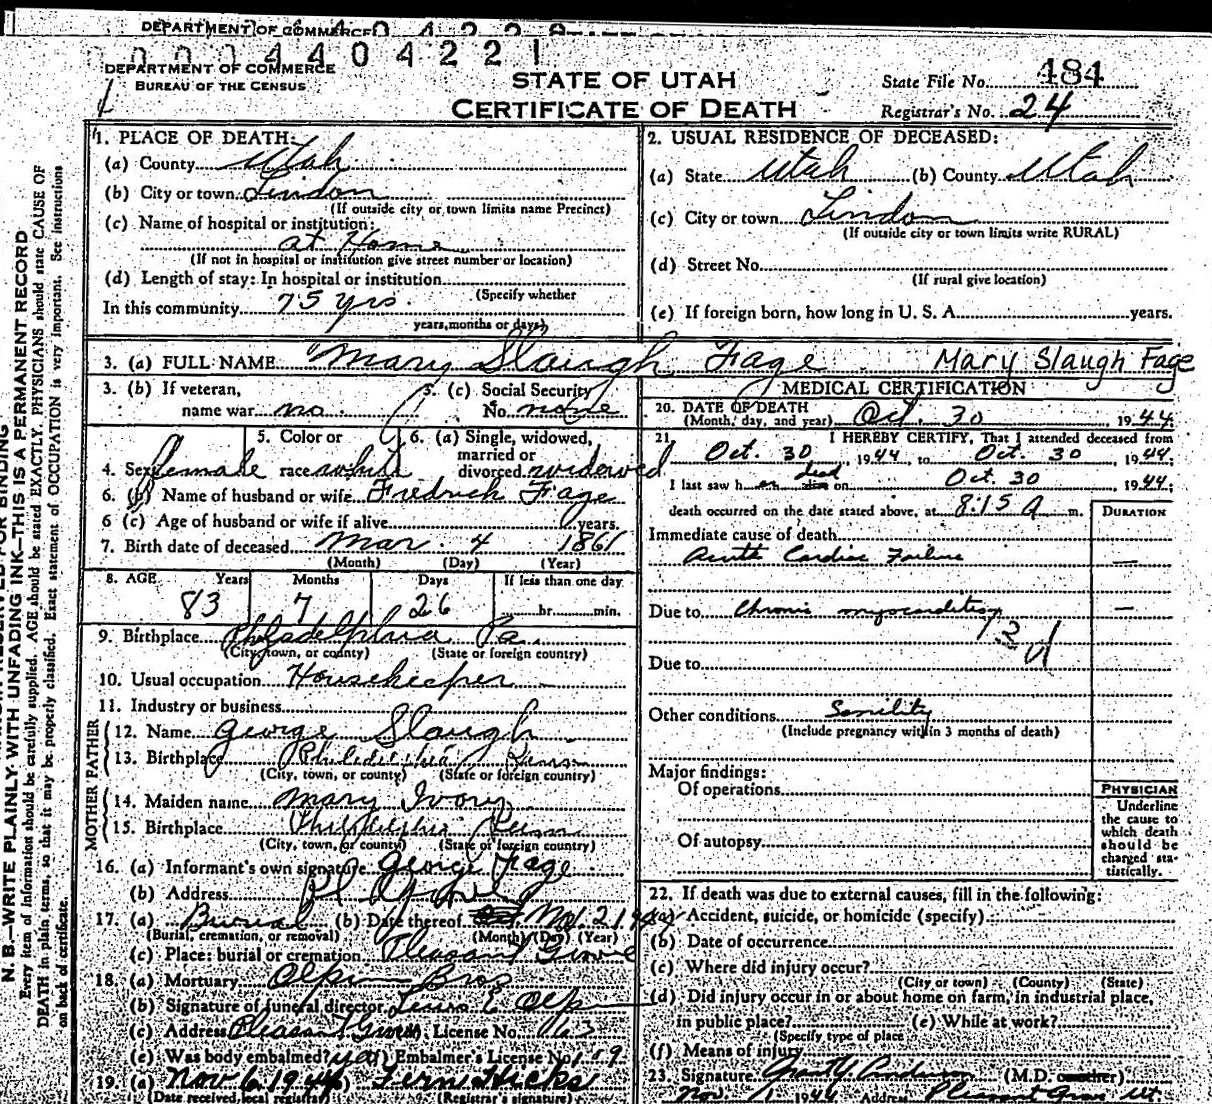 DEPARTMENT OF COMMERCE
0 0 0 4 4 0 4 2 2 1
DEPARTMENT OF COMMERCE
BUREAU OF THE CENSUS
STATE OF UTAH
CERTIFICATE OF DEATH
State File No. 484
Registrar's No. 24
1. PLACE OF DEATH:
(a) County Utah
(b) City or town Lindon
(If outside city or town limits name Precinct)
(c) Name of hospital or institution:
at Home
(If not in hospital or institution give street number or location)
(d) Length of stay: In hospital or institution
(Specify whether
In this community 75 yrs.
years, months or days)
2. USUAL RESIDENCE OF DECEASED:
(a) State Utah (b) County Utah
(c) City or town Lindon
(If outside city or town limits write RURAL)
(d) Street No.
(If rural give location)
(e) If foreign born, how long in U. S. A. years.
3. (a) FULL NAME Mary Slaugh Fage Mary Slaugh Fage
3. (b) If veteran, name war no
3. (c) Social Security No. none
4. Sex female
5. Color or race white
6. (a) Single, widowed, married or divorced widowed
6. (b) Name of husband or wife Fredrick Fage
6 (c) Age of husband or wife if alive years.
7. Birth date of deceased Mar. 4 1861
(Month) (Day) (Year)
8. AGE Years Months Days If less than one day
83 7 26 hr. min.
9. Birthplace Philadelphia Pa.
(City, town, or county) (State or foreign country)
10. Usual occupation Housekeeper
11. Industry or business
FATHER
12. Name George Slaugh
13. Birthplace Philedelphia Penn
(City, town, or county) (State or foreign country)
MOTHER
14. Maiden name Mary Ivory
15. Birthplace Philidelphia Penn
(City, town, or county) (State or foreign country)
16. (a) Informant's own signature George Fage
(b) Address Pl
17. (a) Burial (b) Date thereof Nov. 2 1944
(Burial, cremation, or removal) (Month) (Day) (Year)
(c) Place: burial or cremation Pleasant Grove
18. (a) Mortuary Olpin Bros
(b) Signature of funeral director Olpin
(c) Address Pleasant Grove License No. 163
(e) Was body embalmed? yes Embalmer's License No. 1
19. (a) Nov 6, 1944 (b) Fern Hicks
(Date received local registrar) (Registrar's signature)
MEDICAL CERTIFICATION
20. DATE OF DEATH
(Month, day, and year) Oct. 30, 1944.
21. I HEREBY CERTIFY, That I attended deceased from
Oct. 30, 1944, to Oct. 30, 1944.
I last saw her dead alive on Oct 30 1944;
death occurred on the date stated above, at 8:15 A m.
DURATION
Immediate cause of death
Acute Cardiac Failure —
Due to Chronic myocarditis —
Due to
Other conditions Senility
(Include pregnancy within 3 months of death)
Major findings:
Of operations
Of autopsy
PHYSICIAN
Underline
the cause to
which death
should be
charged sta-
tistically.
22. If death was due to external causes, fill in the following:
(a) Accident, suicide, or homicide (specify)
(b) Date of occurrence
(c) Where did injury occur?
(City or town) (County) (State)
(d) Did injury occur in or about home on farm, in industrial place,
in public place? (e) While at work?
(Specify type of place
(f) Means of injury
23. Signature Grant Y. Anderson (M.D. or other)
Nov. 1 1944 Address Pleasant Grove Ut.
N. B.—WRITE PLAINLY WITH UNFADING INK—THIS IS A PERMANENT RECORD
Every item of information should be carefully supplied. AGE should be stated EXACTLY. PHYSICIANS should state CAUSE OF
DEATH in plain terms, so that it may be properly classified. Exact statement of OCCUPATION is very important. See instructions
on back of certificate.